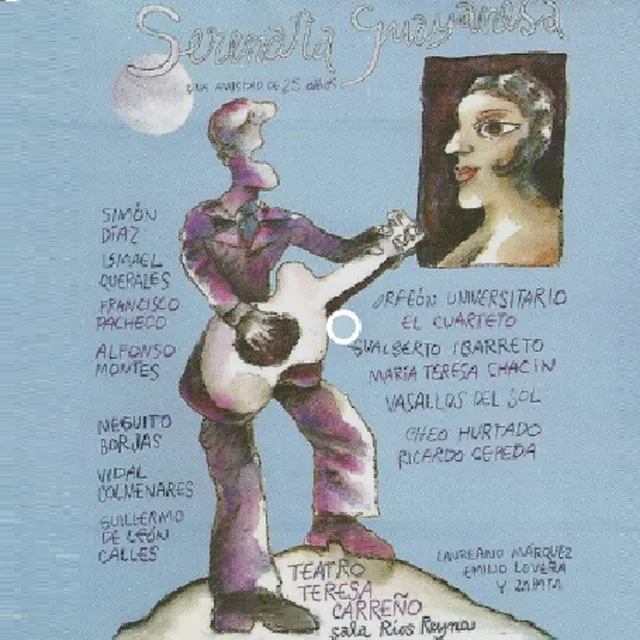 Serenata Guayanesa
UNA AMISTAD DE 25 años
SIMÓN
DÍAZ
ISMAEL
QUERALES
FRANCISCO
PACHECO
ALFONSO
MONTES
ÑEGUITO
BORJAS
VIDAL
COLMENARES
GUILLERMO
DE LEÓN
CALLES
ORFEÓN UNIVERSITARIO
EL CUARTETO
GUALBERTO IBARRETO
MARÍA TERESA CHACÍN
VASALLOS DEL SOL
CHEO HURTADO
RICARDO CEPEDA
LAUREANO MÁRQUEZ
EMILIO LOVERA
Y ZAPATA
TEATRO
TERESA
CARREÑO
sala Ríos Reyna